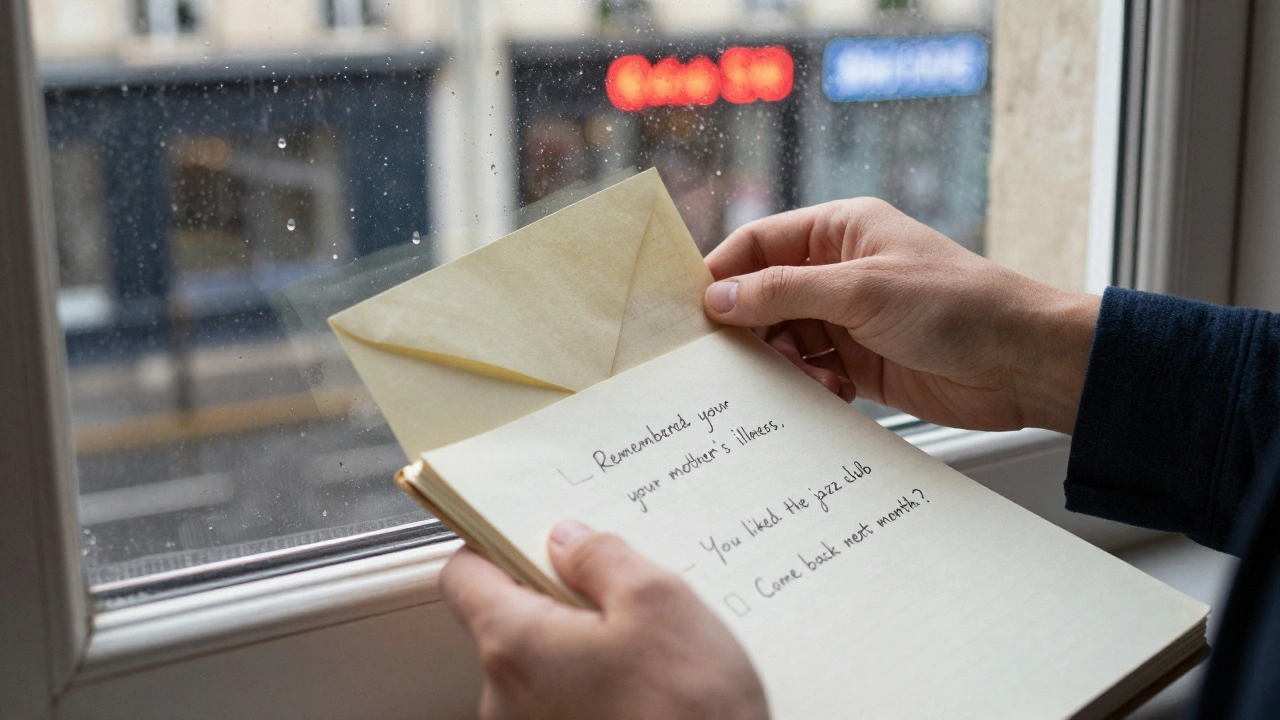 Remembered your
your mother's illness.
You liked the jazz club
Come back next month?